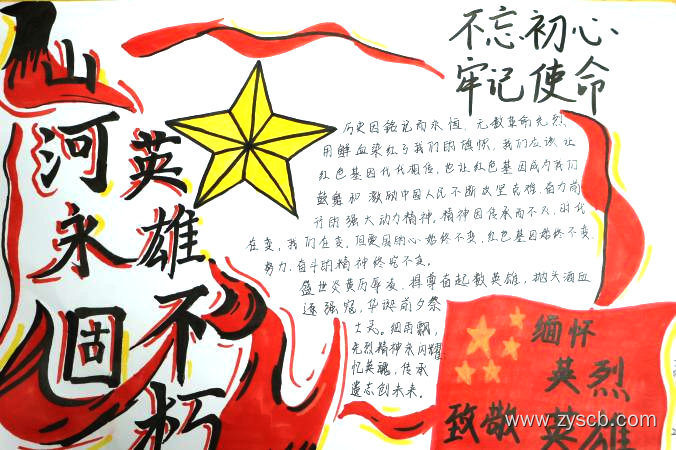 山河永固
英雄不朽
不忘初心
牢记使命
历史因铭记而永恒,无数革命先烈
用鲜血染红了我们的旗帜,我们应该让
红色基因代代相传,也让红色基因成为我们
鼓舞和激励中国人民不断攻坚克难,奋力前
行的强大动力精神,精神因传承而不灭,时代
在变,我们在变,但爱国的心始终不变,红色基因始终不变,
努力,奋斗的精神终究不变。
盛世炎黄历年夜,撑尊首起数英雄,抛头洒血
逐强寇,华诞前夕祭
士灵。细雨飘,
先烈精神永闪耀
忆英魂,传承
遗志创未来。
缅怀
英烈
致敬英雄
www.zyscb.com